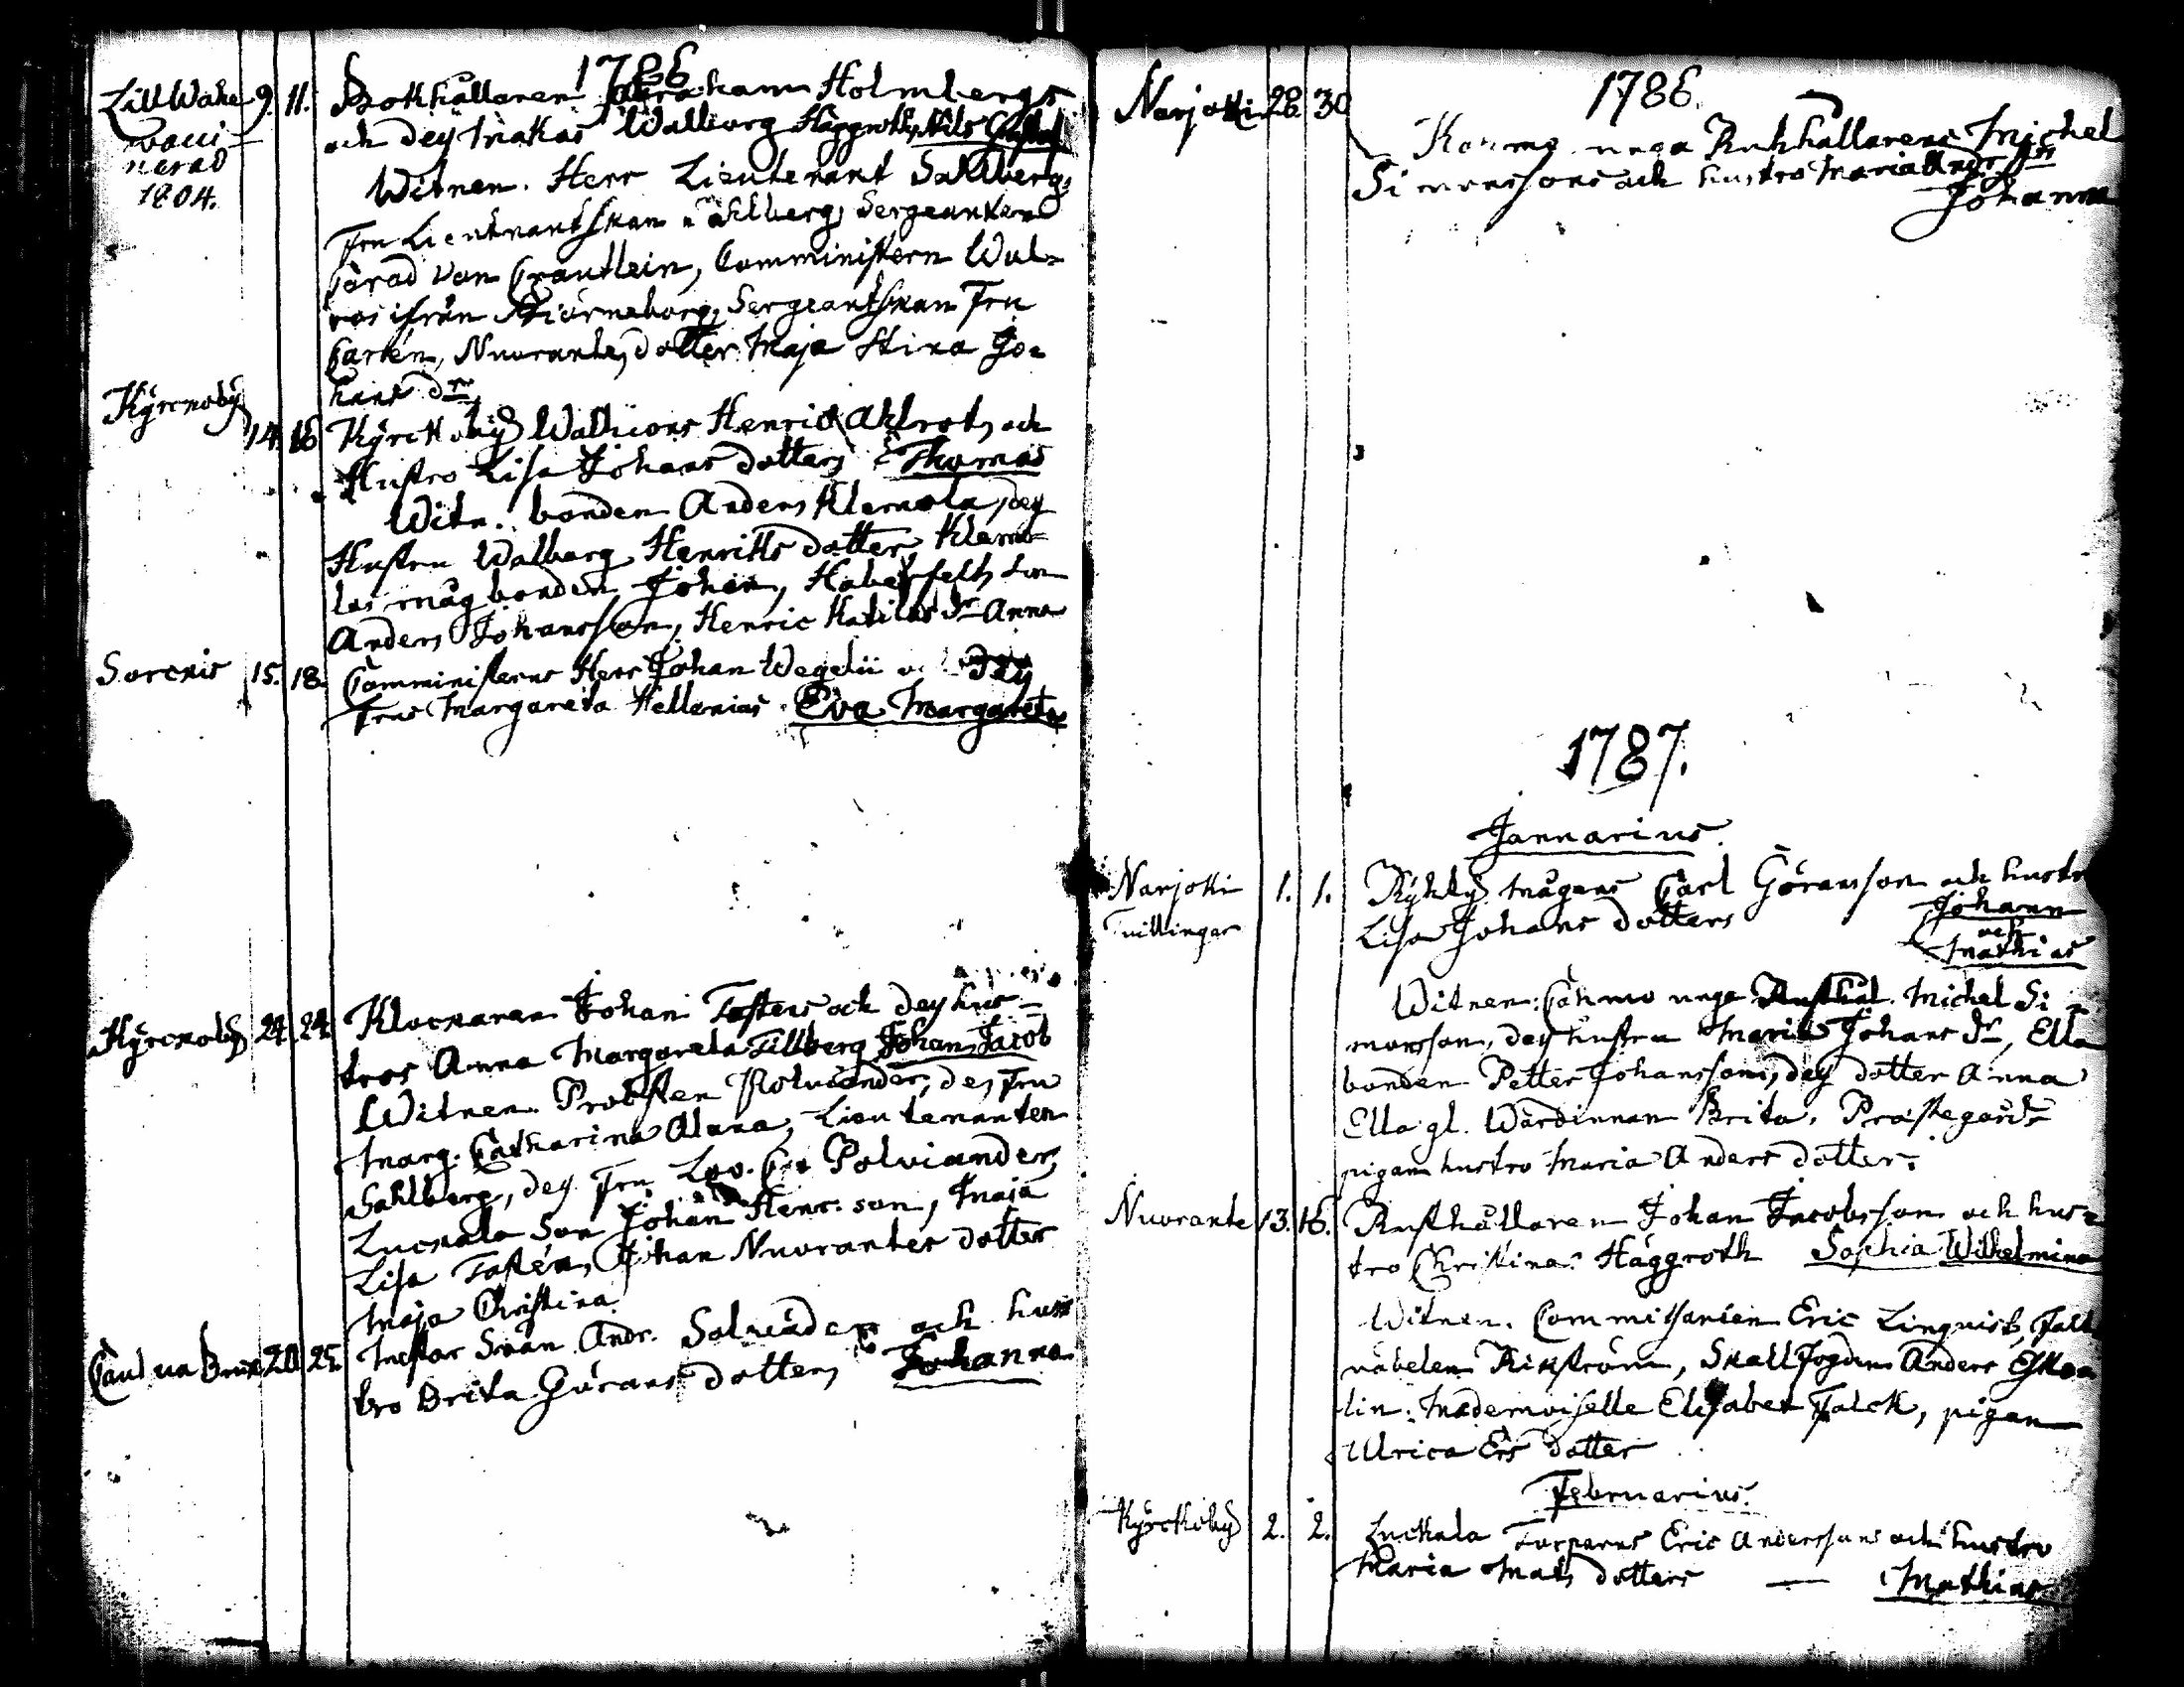 1786
Lill Wahe 9. 11. Bokhållaren Abraham Holmbergs
vacci-
nerad
1804.
och dey makas Walborg Häggroth, Nils Gustaf
Witnen. Herr Lieutenant Sahlberg,
Fru Lieutnantskan Sahlberg, Sergeanten
Carad von Crautlein, Comministern Wal-
ros ifrån Biörneborg, Sergeantskan Fru
Carlén, Nuorante dotter Maja Stina Jo-
hans dr
Kyrckoby 14. 16. Kyrckoby Wallions Henric Ahlrot, och
Hustro Lisa Johans dotters Thomas
Witn. bonden Anders Klemola, dey
Hustru Walborg Henriks dotter, Klemo-
las måg bonden Johan, Haberfelts son
Anders Johansson, Henric Katilas dr Anna
Sorckis 15. 18. Comministerns Herr Johan Wegelii och Dey
Frus Margareta Hellenias Eva Margareta
Kyrckoby 24. 24. Klockaren Johan Tasters och dey hus-
tros Anna Margareta Tillberg Johan Jacob
Witnen. Probsten Polviander, dey Fru
Marg. Catharina Alana, Lieutenanten
Sahlberg, dey Fru, Polviander,
Luckala Son Johan Henr. son, Maja
Lisa Tastén, Johan Nuorantes dotter
Maja Christina.
20. 25. Andr. och hus
tro Brita Görans dotters Johanna
1786.
Narjoki 28. 30 unga Rukhållarens Michel
Simonssons och hustro Maria And. dr
Johanna
1787.
Januarius.
Narjoki 1. 1. Kyhty mågens Carl Göransson och hustr
Tvillingar Lisa Johans dotters Johann
och
Mathias
Witnen: unga Rusthål. Michel Si-
monsson, dey hustru Maria Johans dr, Ella
bonden Petter Johansson, dey dotter Anna
Ella gl. Wärdinnan Brita, Prästegårds
pigan hustro Maria Anders dotter.
Nuorante 13. 16. Rusthållaren Johan Jacobsson och hus-
tro Christina Häggroth Sophia Wilhelmina
Witnen. Commissarien Eric Linquist, Fält
väbelen Rikström, Skallfogden Anders
lin, Mademoiselle Elisabet Falck, pigan
Ulrica Ers dotter
Februarius.
Kyrckoby 2. 2. Luckala Torparns Eric Anderssons och hustro
Maria Mats dotters — Mathias